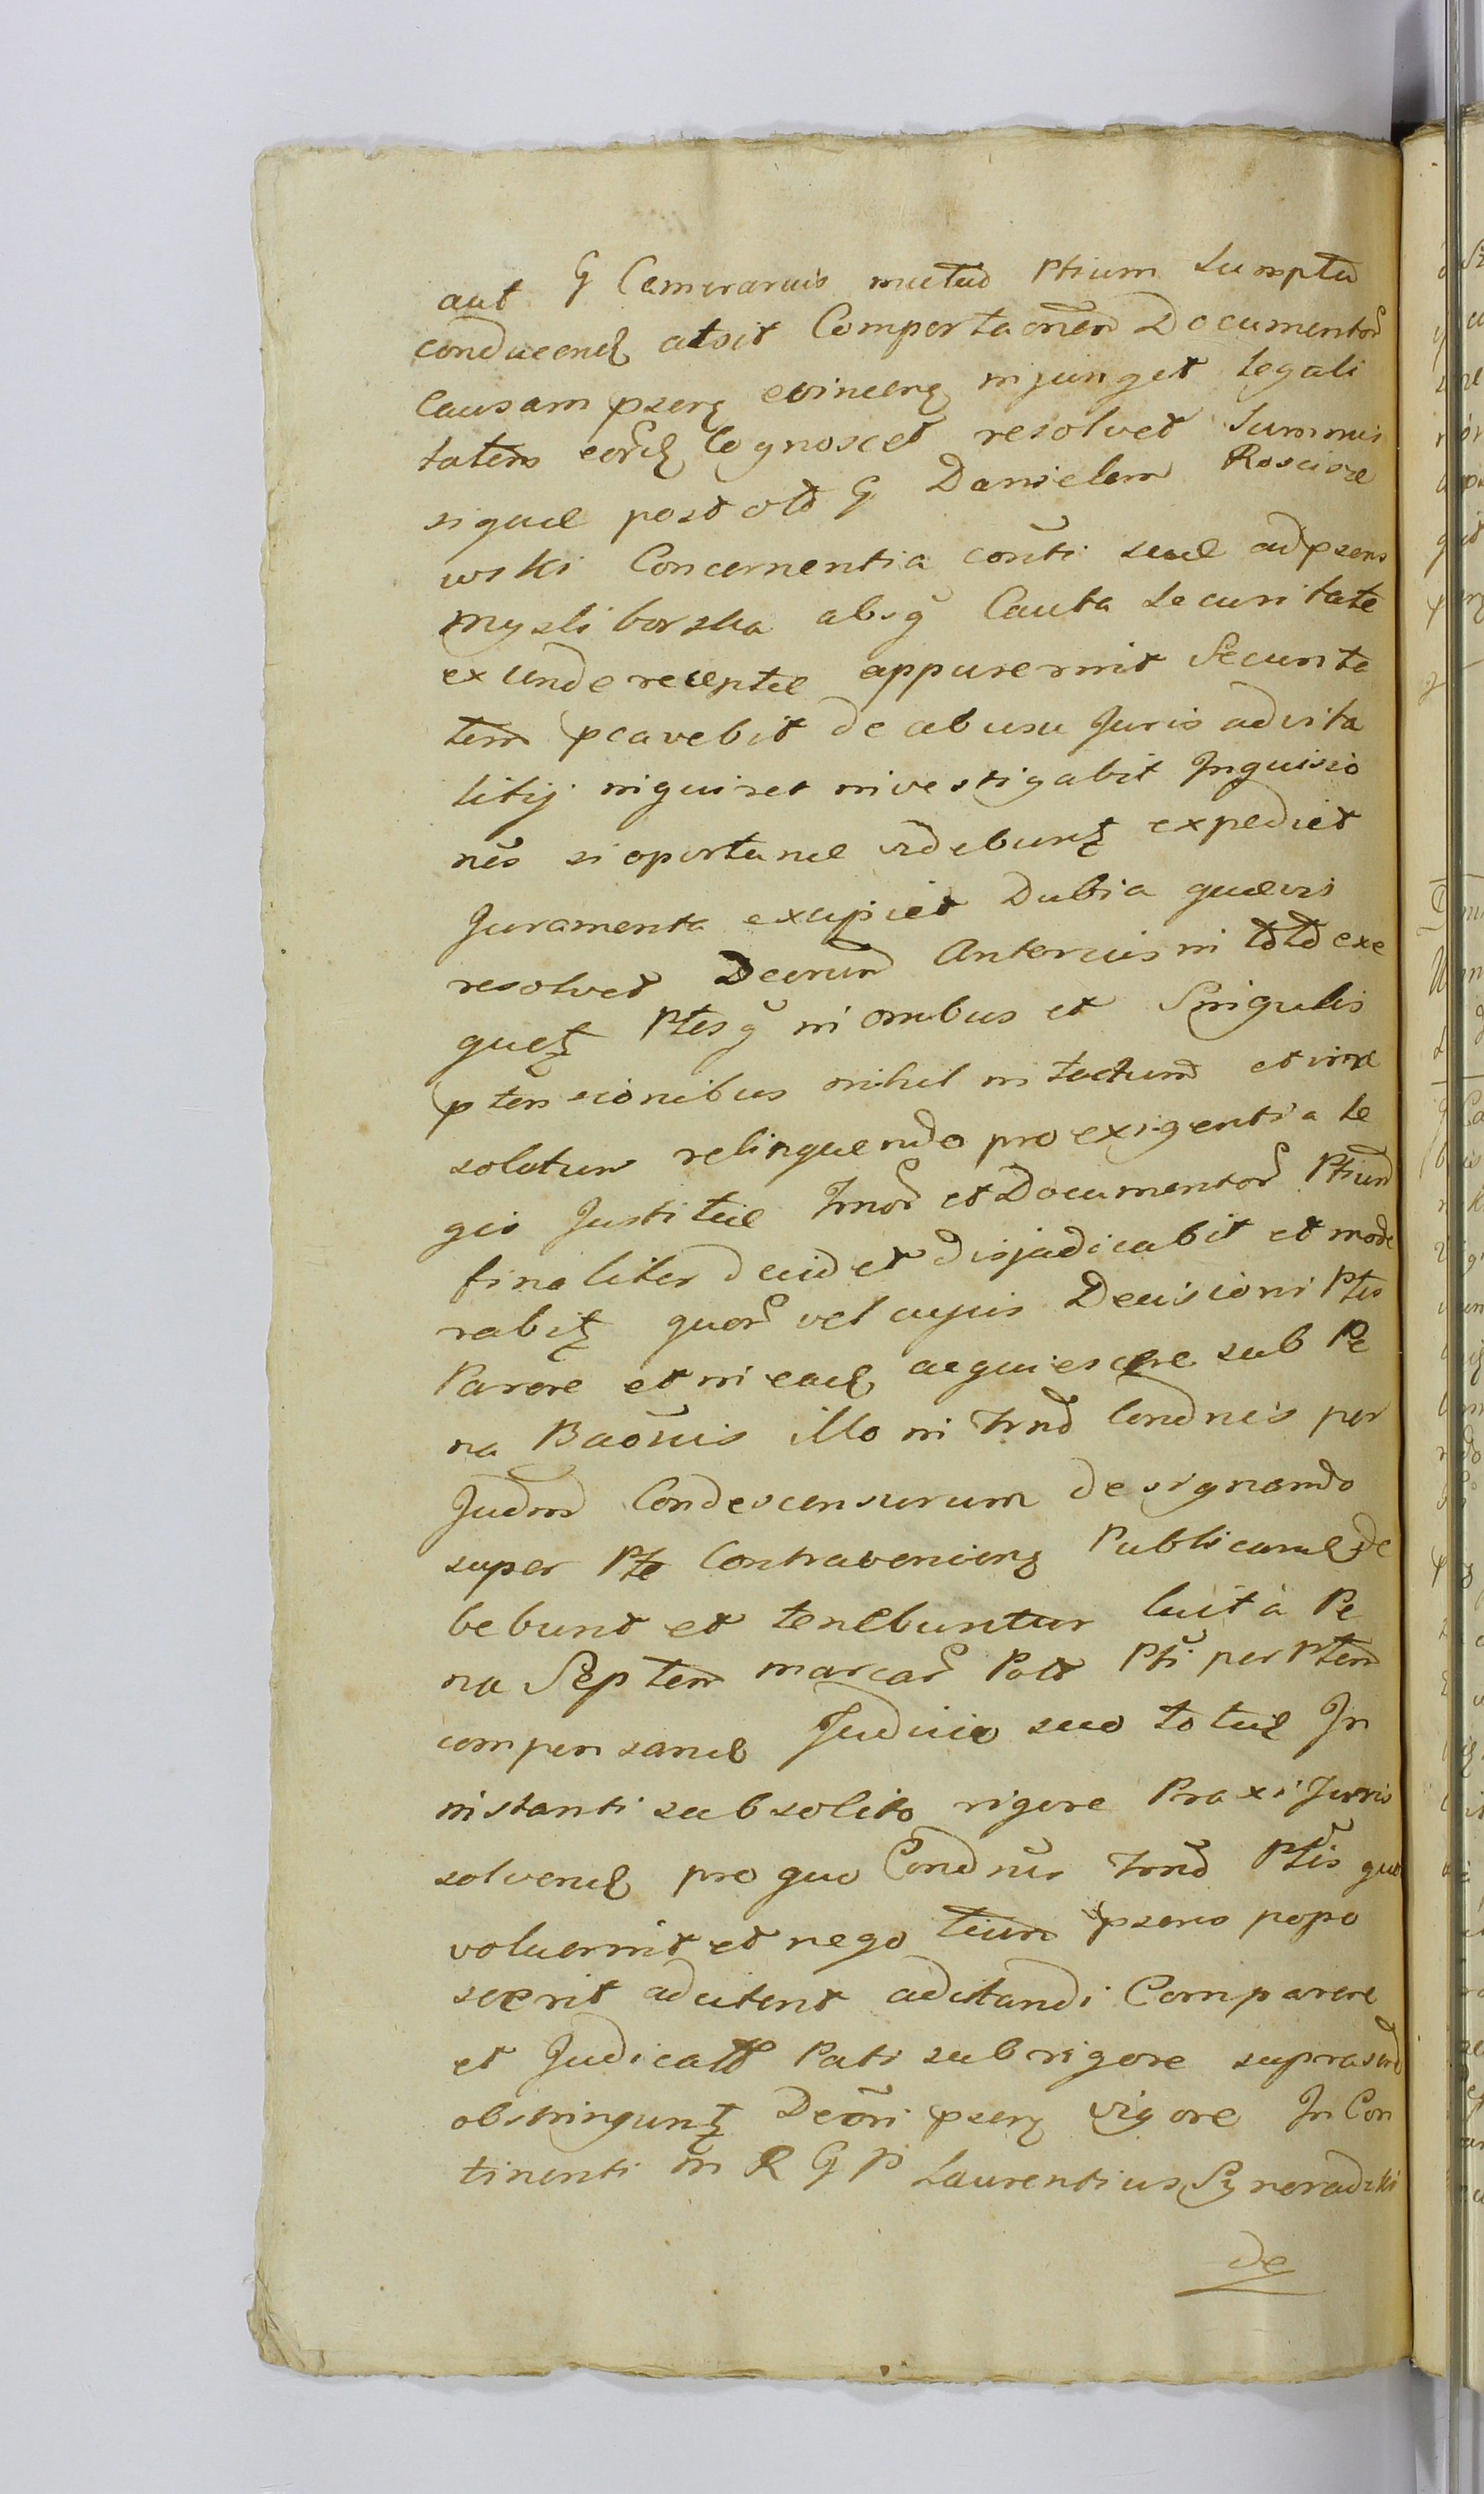 aut G Camerarius mutuo Ptium Sumptu
conducend atoit Comportaonem Documentor
Causam pserz evincenz injunget legali
tatem eord Cognoscet resolvet Summis
sique post olt G Danielem Roscisze
wski Concernentia conti suae ad psens
Mysliborska absq Cauta securitate
exunde receptae appuruerint Securita
tem pcavebit de abusu Juris advita
litij inquiret investigabit Inquisio
nes si oportunae videbuntz expediet
Juramenta excipiet Dubia quaevis
resolvet Decrum Anterius in toto exe
quetz Ptesq in omibus et Singulis
ptensionibus nihil intactum et irre
solutum relinquendo pro exigentia le
gis Justitiae Jrnor et Documentor Ptium
finaliter decidet disjudicabit et mode
rabitz quor vel cujus Decisioni Ptes
Parere et in ead acquiescere sub Pe
na Baonis illo in Trno Condnis per
Judm Condescensurum designando
super Pte Contravenienz Publicand de
bebunt et tenebuntur luita Pe
na Septem marcar Polt Pti per Ptem
compensand Judicio suo totid In
instanti sub solito rigore Praxi Juris
solvend pro quo Condnis Trno Ptes quo
voluerint et negotium psens popo
scerit adcitent adcitandi Comparere
et Judicatt Pati sub rigore suprascrd
obstringuntz Decri pserz vigore In Con
tinenti in R G P Laurentius Synoradzki
de